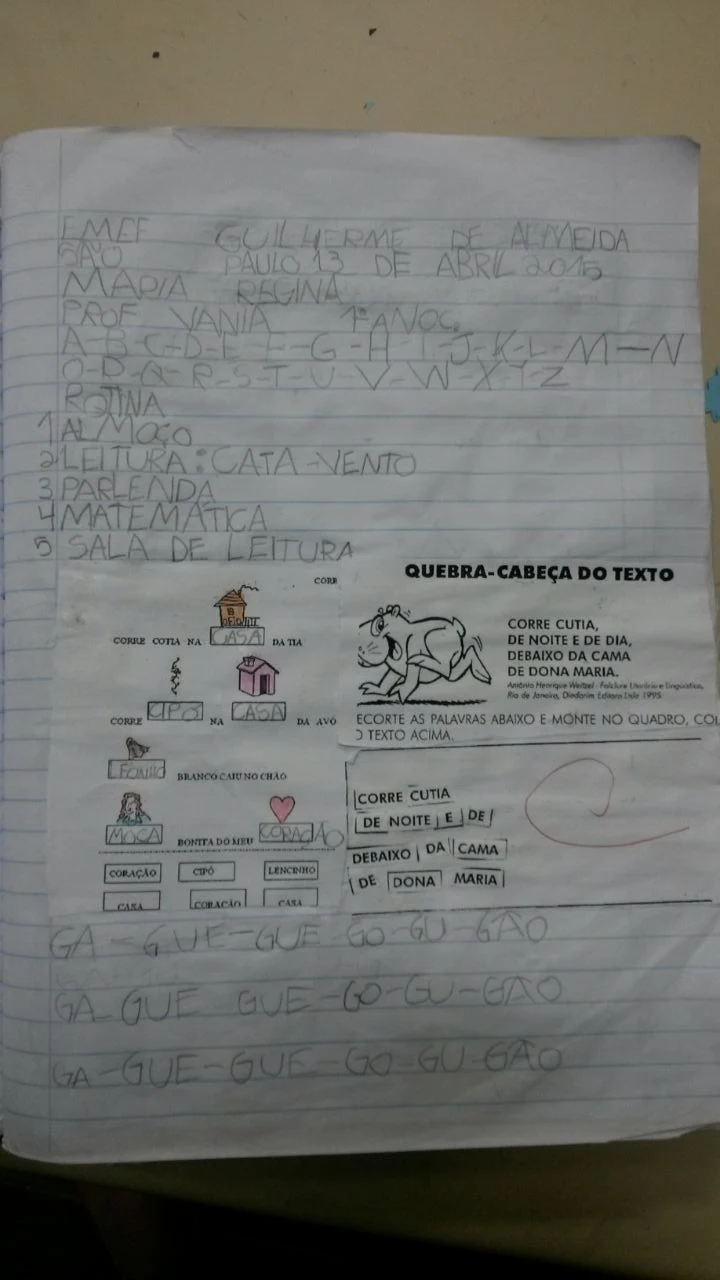 EMEF GUILHERME DE ALMEIDA
SÃO PAULO 13 DE ABRIL 2015
MARIA REGINA
PROF VANIA 1º ANO C
A-B-C-D-E-F-G-H-I-J-K-L-M-N
O-P-Q-R-S-T-U-V-W-X-Y-Z
ROTINA
1 ALMOÇO
2 LEITURA: CATA-VENTO
3 PARLENDA
4 MATEMÁTICA
5 SALA DE LEITURA
CORR
CORRE COTIA NA CASA DA TIA
CORRE CIPÓ NA CASA DA AVÓ
BRANCO CAIU NO CHÃO
MOÇA BONITA DO MEU CORAÇÃO
CORAÇÃO CIPÓ LENCINHO
CASA CORAÇÃO CASA
QUEBRA-CABEÇA DO TEXTO
CORRE CUTIA,
DE NOITE E DE DIA,
DEBAIXO DA CAMA
DE DONA MARIA.
Antônio Henrique Weitzel - Folclore Literário e Linguístico,
Rio de Janeiro, Diadorim Editora Ltda 1995.
ECORTE AS PALAVRAS ABAIXO E MONTE NO QUADRO, COL
O TEXTO ACIMA.
CORRE CUTIA
DE NOITE E DE
DEBAIXO DA CAMA
DE DONA MARIA
GA-GUE-GUE-GO-GU-GÃO
GA GUE GUE-GO-GU-GÃO
GA-GUE-GUE-GO GU GÃO